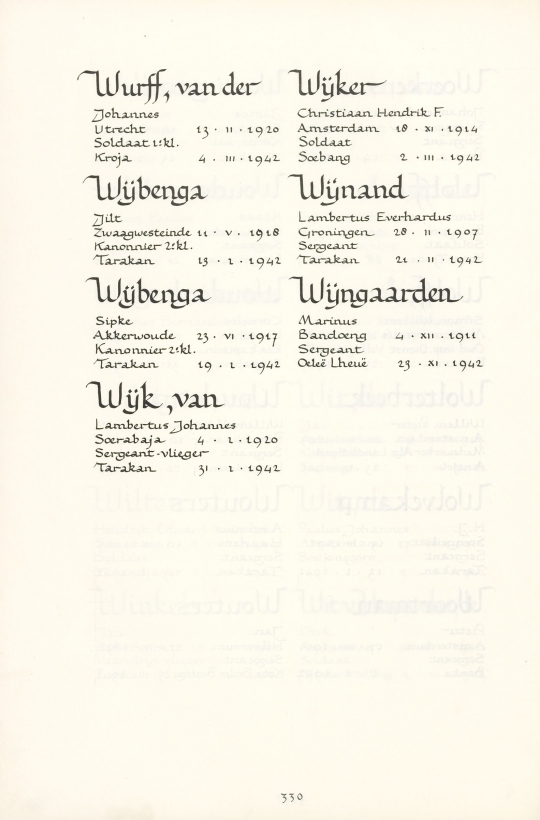 Wurff, van der
Johannes
Utrecht 13 · II · 1920
Soldaat 1e kl.
Kroja 4 · III · 1942
Wijbenga
Jilt
Zwaagwesteinde 11 · V · 1918
Kanonnier 2e kl.
Tarakan 13 · 1 · 1942
Wijbenga
Sipke
Akkerwoude 23 · VI · 1917
Kanonnier 2e kl.
Tarakan 19 · 1 · 1942
Wijk, van
Lambertus Johannes
Soerabaja 4 · 1 · 1920
Sergeant-vlieger
Tarakan 31 · 1 · 1942
Wijker
Christiaan Hendrik F.
Amsterdam 18 · XI · 1914
Soldaat
Soebang 2 · III · 1942
Wijnand
Lambertus Everhardus
Groningen 28 · II · 1907
Sergeant
Tarakan 21 · II · 1942
Wijngaarden
Marinus
Bandoeng 4 · XII · 1911
Sergeant
Oeleë Lheuë 23 · XI · 1942
330